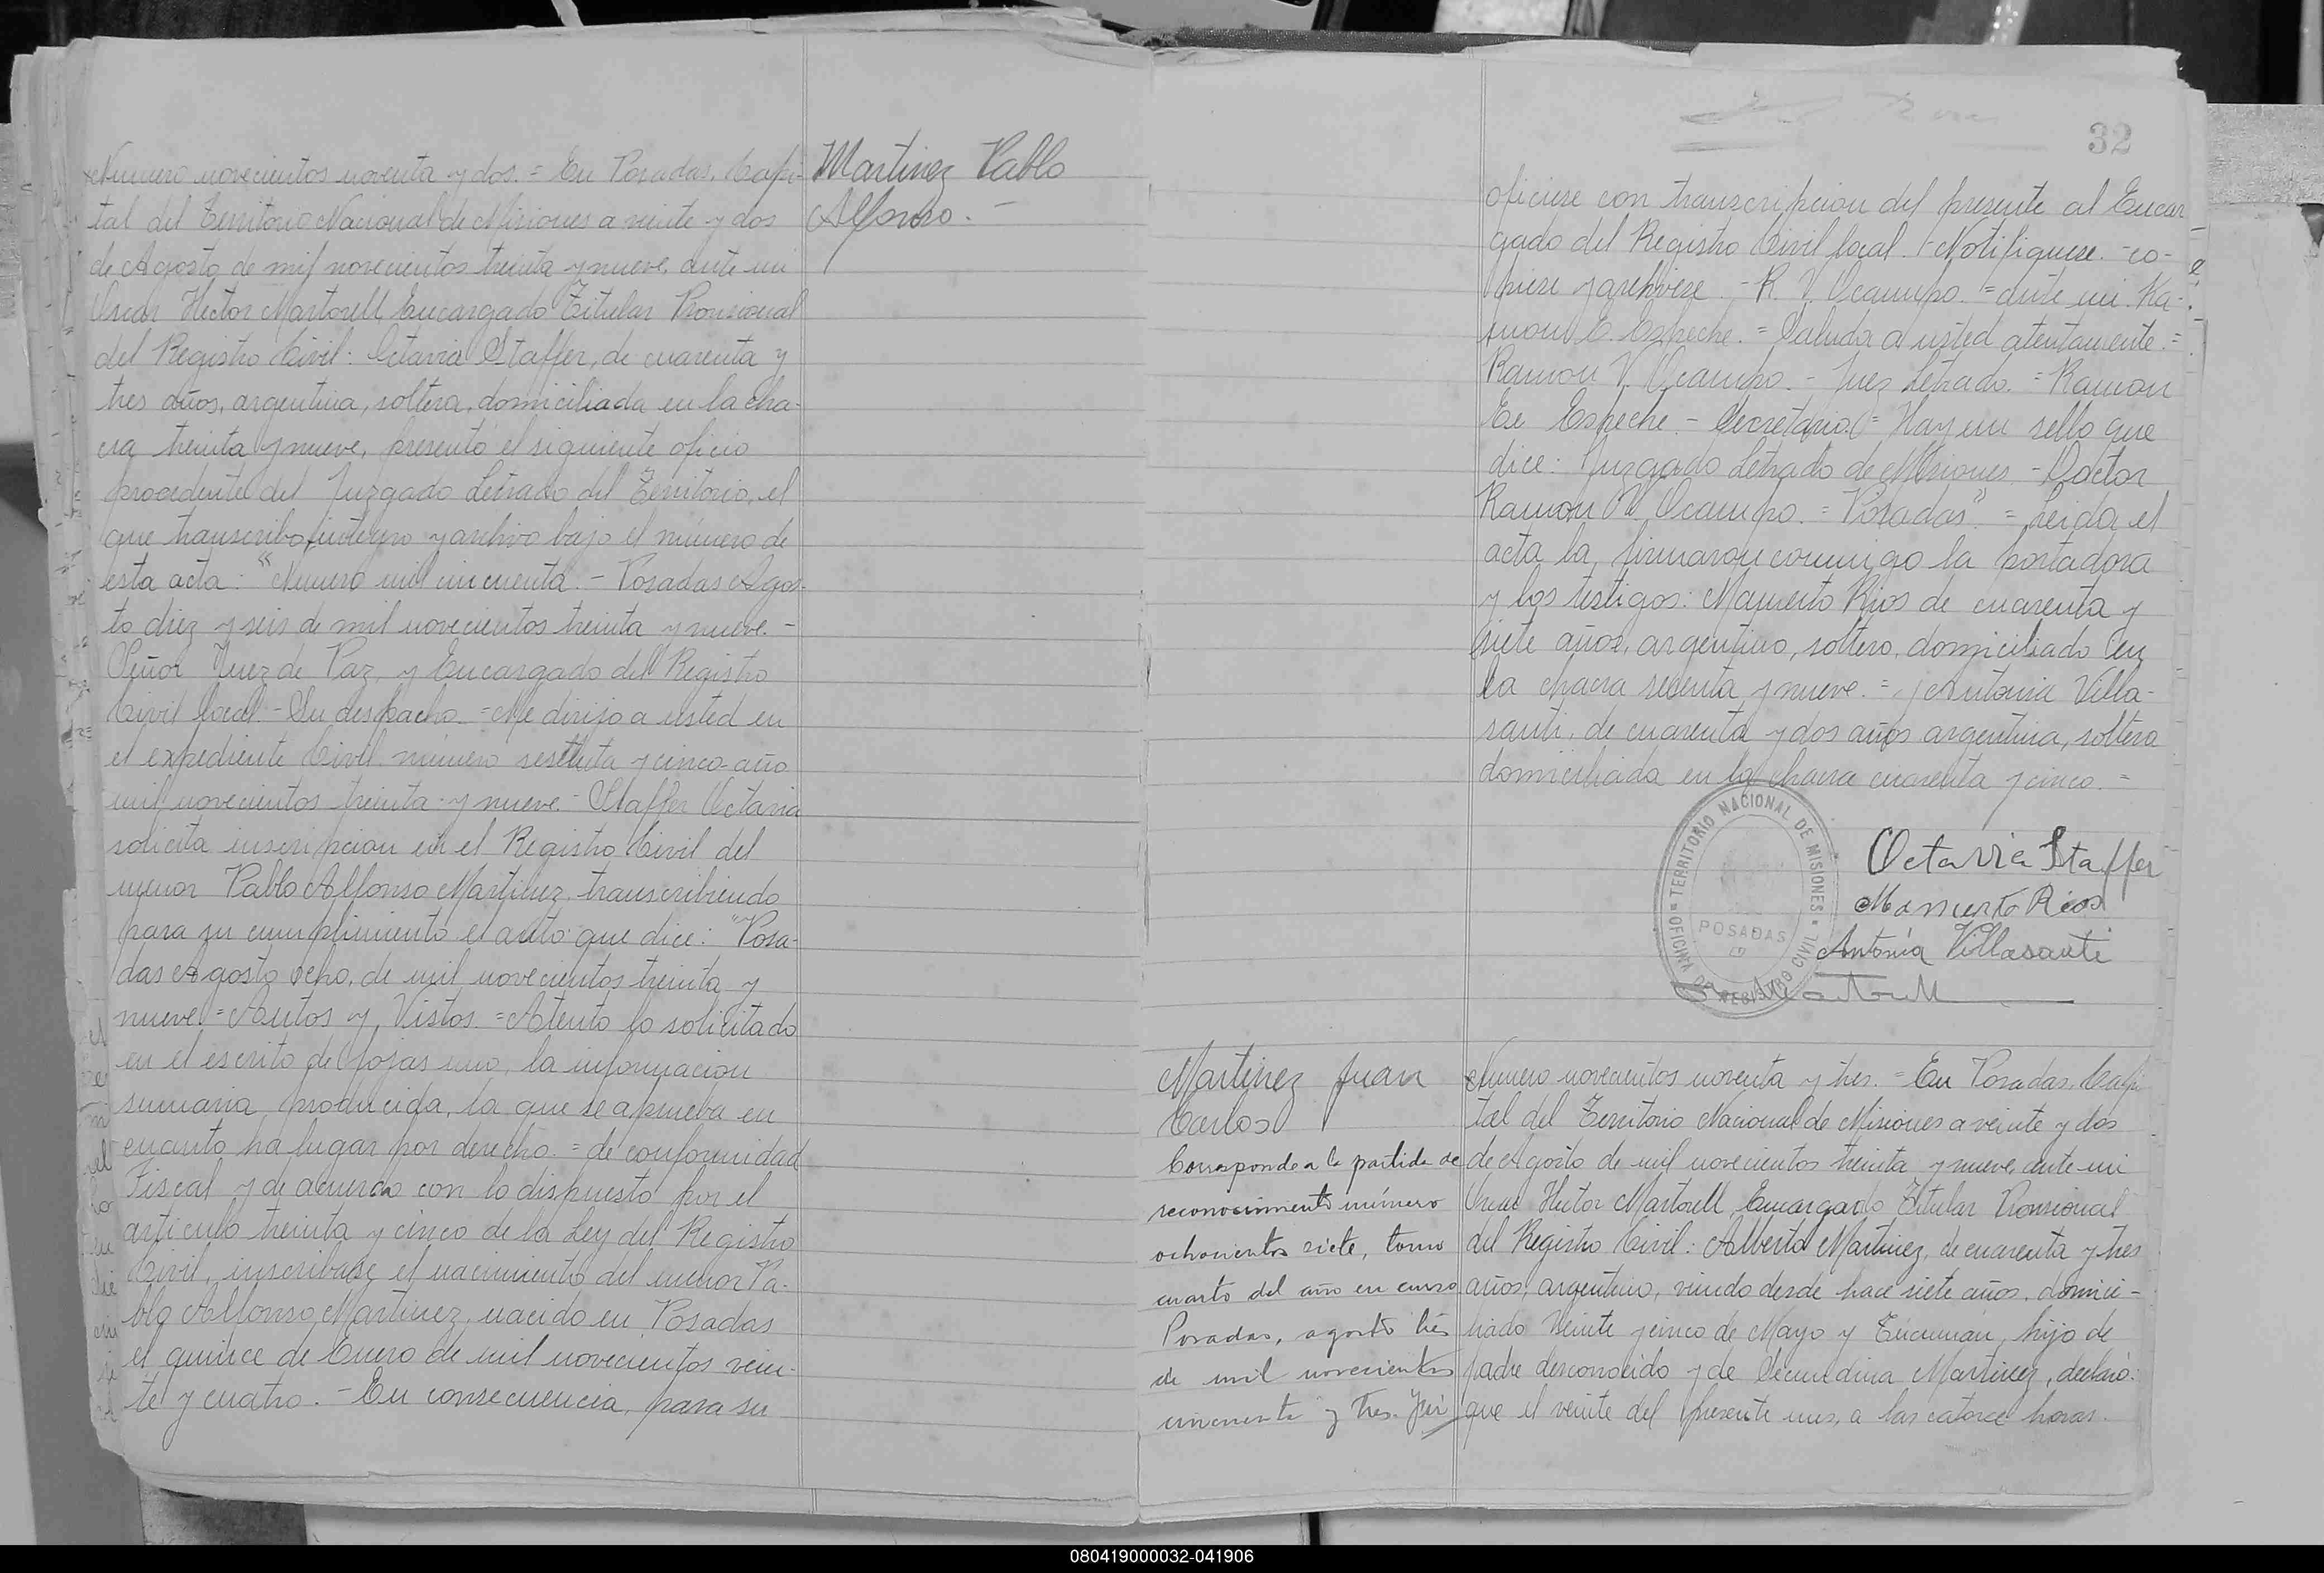 Martinez Pablo
Alfonso. -
Numero novecientos noventa y dos. = En Posadas, Capi-
tal del Territorio Nacional de Misiones a veinte y dos
de Agosto de mil novecientos treinta y nueve, ante mi
Oscar Hector Martorell Encargado Titular Provisional
del Registro Civil: Octavia Staffer, de cuarenta y
tres años, argentina, soltera, domiciliada en la cha-
cra treinta y nueve, presentó el siguiente oficio
procedente del Juzgado Letrado del Territorio, el
que transcribo integro y archivo bajo el número de
esta acta: "Numero mil cincuenta. - Posadas Agos-
to diez y seis de mil novecientos treinta y nueve. -
Señor Juez de Paz, y Encargado del Registro
Civil local. - Su despacho. = Me dirijo a usted en
el expediente Civil número sesenta y cinco año
mil novecientos treinta y nueve. - Staffer Octavia
solicita inscripcion en el Registro Civil del
menor Pablo Alfonso Martinez, transcribiendo
para su cumplimiento el auto que dice: "Posa-
das Agosto ocho, de mil novecientos treinta y
nueve. = Autos y Vistos. = Atento lo solicitado
en el escrito de fojas uno, la informacion
sumaria producida, la que se aprueba en
cuanto ha lugar por derecho. = de conformidad
Fiscal y de acuerdo con lo dispuesto por el
articulo treinta y cinco de la Ley del Registro
Civil, inscribase el nacimiento del menor Pa-
blo Alfonso Martinez, nacido en Posadas
el quince de Enero de mil novecientos vein-
te y cuatro. - En consecuencia, para su
32
oficiese con transcripcion del presente al Encar
gado del Registro Civil local. - Notifiquese. - co-
piese y archivese. - R. V. Ocampo. = ante mi. Ra-
mon E. Espeche. = Saluda a usted atentamente. =
Ramon V. Ocampo. - Juez Letrado. = Ramon
E. Espeche. - Secretario. = Hay un sello que
dice: Juzgado Letrado de Misiones. - Doctor
Ramon V. Ocampo. = Posadas". = Leida el
acta la firmaron conmigo la portadora
y los testigos: Mamerto Rios de cuarenta y
siete años, argentino, soltero, domiciliado en
la chacra sesenta y nueve. = y Antonia Villa-
santi, de cuarenta y dos años argentina, soltera
domiciliada en la chacra cuarenta y cinco. =
OFICINA DE REGISTRO CIVIL = TERRITORIO NACIONAL DE MISIONES
POSADAS
Octavia Staffer
Mamerto Rios
Antonia Villasanti
Martinez Juan
Carlos
Corresponde a la partida de
reconocimiento número
ochocientos siete, tomo
cuarto del año en curso
Posadas, agosto tres
de mil novecientos
cincuenta y tres.
Numero novecientos noventa y tres. = En Posadas, Capi
tal del Territorio Nacional de Misiones a veinte y dos
de Agosto de mil novecientos treinta y nueve, ante mi
Oscar Hector Martorell, Encargado Titular Provisional
del Registro Civil: Alberto Martinez, de cuarenta y tres
años, argentino, viudo desde hace siete años, domici-
liado Veinte y cinco de Mayo y Tucumán, hijo de
padre desconocido y de Secundina Martinez, declaró:
que el veinte del presente mes, a las catorce horas.
080419000032-041906